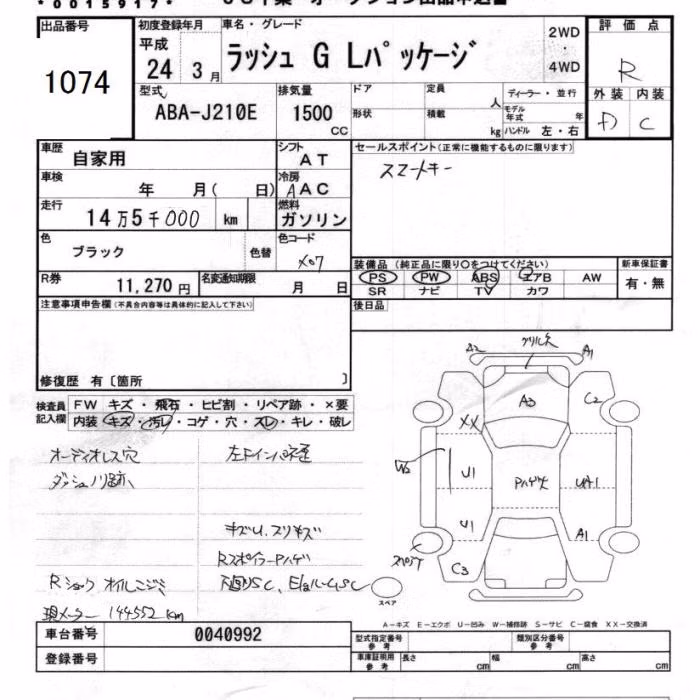 *0015917*
出品番号 初度登録年月 車名・グレード 評価点
1074 平成 24 3月 ラッシュ G Lパッケージ 2WD・4WD R
型式 排気量 ドア 定員 人 ディーラー・並行 外装 内装
ABA-J210E 1500 CC 形状 積載 kg モデル年式 年 ハンドル 左・右 D C
車歴 自家用 シフト AT セールスポイント(正常に機能するものに限ります)
車検 年 月( 日) 冷房 AAC スマートキー
走行 14万5千000 km 燃料 ガソリン
色 ブラック 色替 色コード X07
装備品 (純正品に限り○をつけてください) 新車保証書
R券 11,270円 名変通知期限 月 日 PS PW ABS エアB AW 有・無
SR ナビ TV カワ
注意事項申告欄(不具合内容等は具体的に記入して下さい) 後日品
修復歴 有〔箇所 〕
検査員記入欄 FW キズ・飛石・ヒビ割・リペア跡・×要
内装 キズ・汚レ・コゲ・穴・スレ・キレ・破レ
オーディオレス穴
ダッシュノリ跡
キズU.スリキズ
RスポイラーPハゲ
Rショック オイルニジミ 下廻りSC、
現メーター 144552km
A2 A1
A3 C2
XX
W3
U1 PハゲX UA1
U1 A1
C3
スペア
A-キズ E-エクボ U-凹み W-補修跡 S-サビ C-腐食 XX-交換済
車台番号 0040992 型式指定番号 参考 類別区分番号 参考
登録番号 車庫証明用 参考 長さ cm 幅 cm 高さ cm